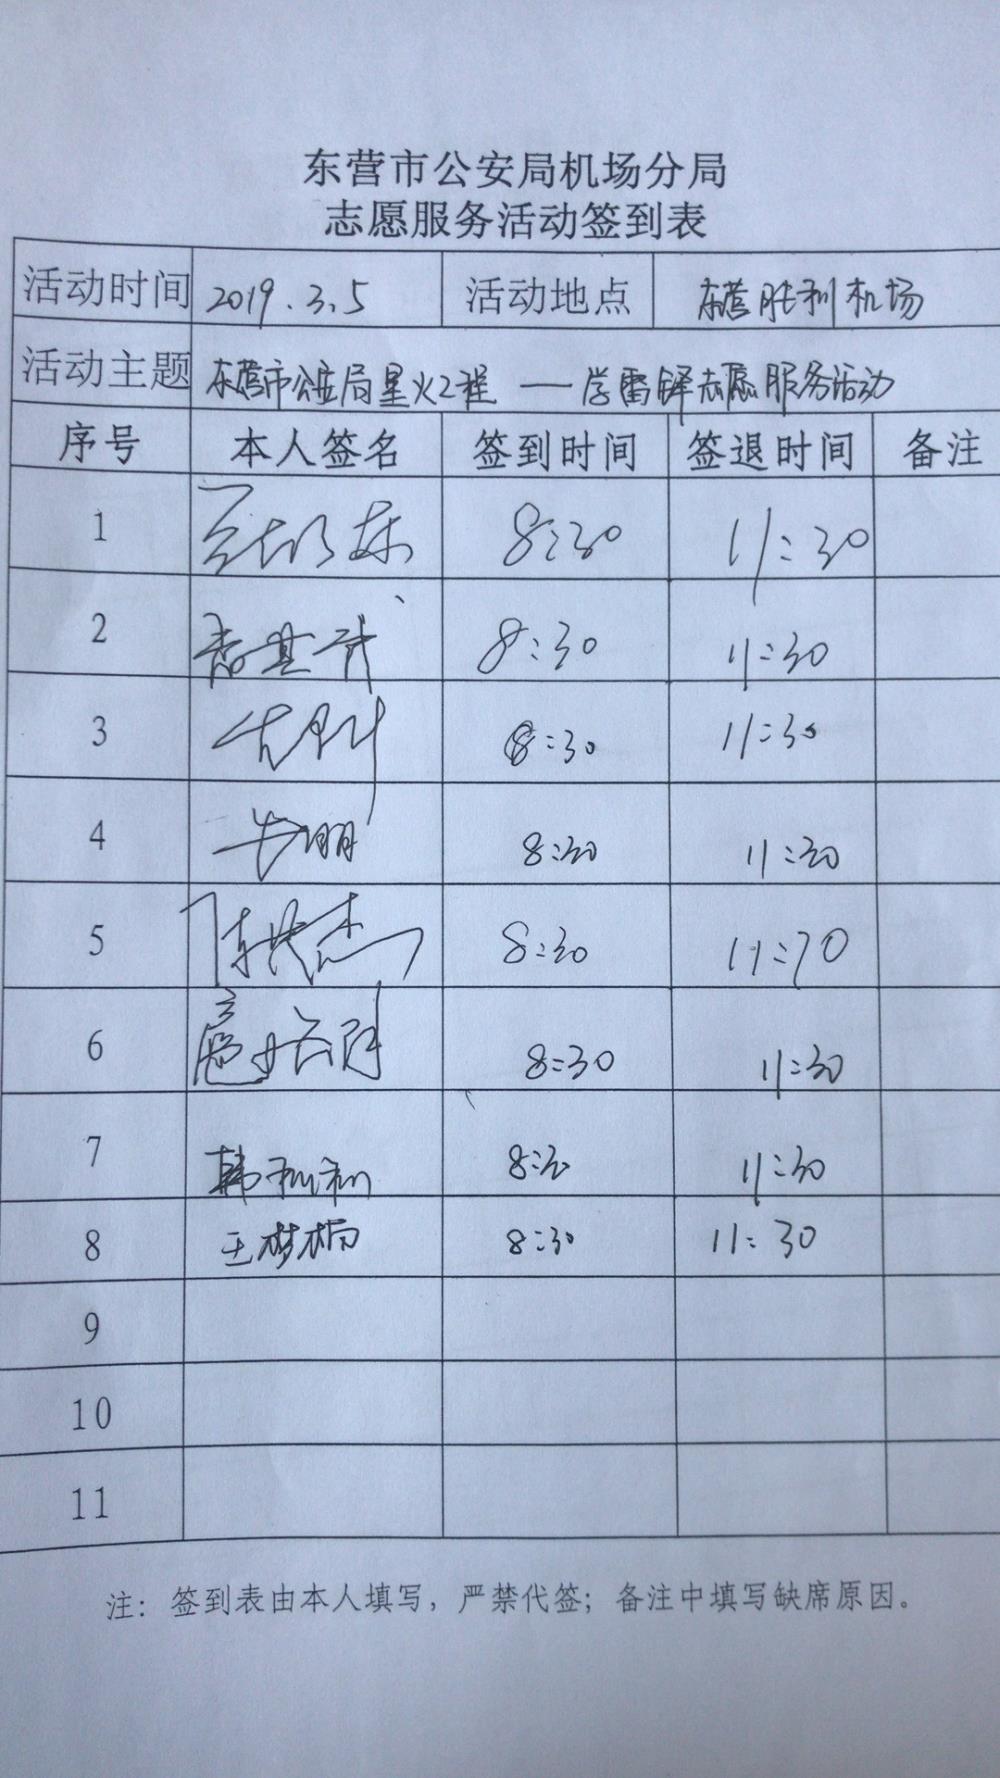 东营市公安局机场分局
志愿服务活动签到表
活动时间 2019.3.5 活动地点 东营胜利机场
活动主题 东营市公安局星火工程——学雷锋志愿服务活动
序号 本人签名 签到时间 签退时间 备注
1 8:30 11:30
2 8:30 11:30
3 8:30 11:30
4 牛朋 8:30 11:30
5 8:30 11:30
6 8:30 11:30
7 8:30 11:30
8 王梦楠 8:30 11:30
9
10
11
注：签到表由本人填写，严禁代签；备注中填写缺席原因。